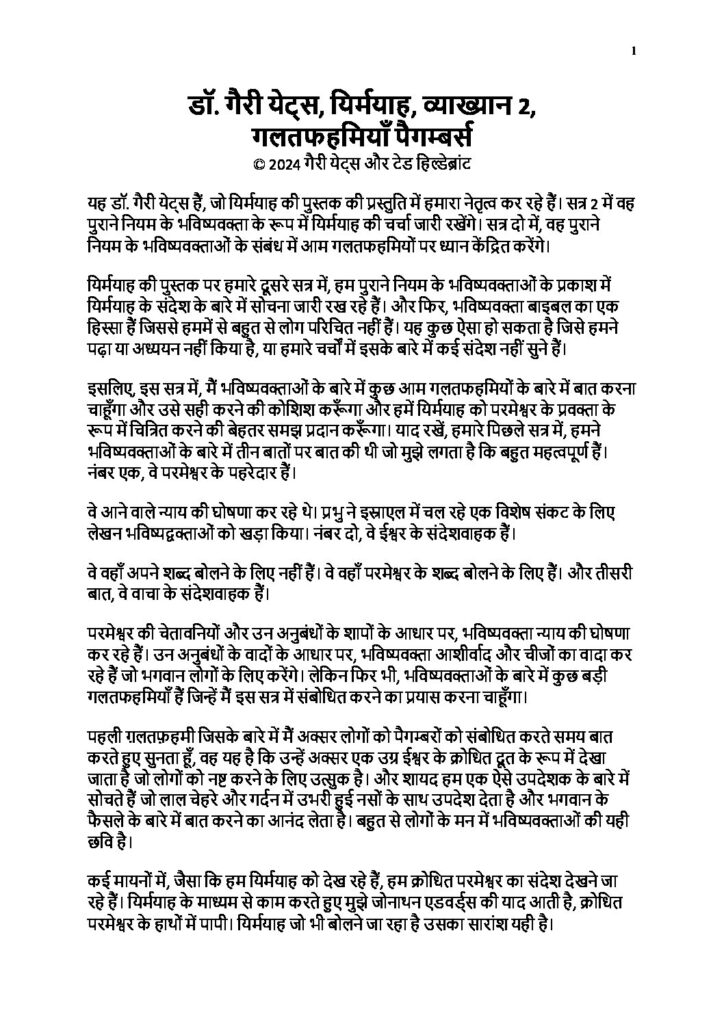 1
डॉ. गैरी येट्स, यिर्मयाह, व्याख्यान 2,
गलतफहमियाँ पैगम्बर्स
© 2024 गैरी येट्स और टेड हिल्डेब्रांट
यह डॉ. गैरी येट्स हैं, जो यिर्मयाह की पुस्तक की प्रस्तुति में हमारा नेतृत्व कर रहे हैं। सत्र 2 में वह
पुराने नियम के भविष्यवक्ता के रूप में यिर्मयाह की चर्चा जारी रखेंगे। सत्र दो में, वह पुराने
नियम के भविष्यवक्ताओं के संबंध में आम गलतफहमियों पर ध्यान केंद्रित करेंगे।
यिर्मयाह की पुस्तक पर हमारे दूसरे सत्र में, हम पुराने नियम के भविष्यवक्ताओं के प्रकाश में
यिर्मयाह के संदेश के बारे में सोचना जारी रख रहे हैं। और फिर, भविष्यवक्ता बाइबल का एक
हिस्सा हैं जिससे हममें से बहुत से लोग परिचित नहीं हैं। यह कुछ ऐसा हो सकता है जिसे हमने
पढ़ा या अध्ययन नहीं किया है, या हमारे चर्चों में इसके बारे में कई संदेश नहीं सुने हैं।
इसलिए, इस सत्र में, मैं भविष्यवक्ताओं के बारे में कुछ आम गलतफहमियों के बारे में बात करना
चाहूँगा और उसे सही करने की कोशिश करूँगा और हमें यिर्मयाह को परमेश्वर के प्रवक्ता के
रूप में चित्रित करने की बेहतर समझ प्रदान करूँगा। याद रखें, हमारे पिछले सत्र में, हमने
भविष्यवक्ताओं के बारे में तीन बातों पर बात की थी जो मुझे लगता है कि बहुत महत्वपूर्ण हैं।
नंबर एक, वे परमेश्वर के पहरेदार हैं।
वे आने वाले न्याय की घोषणा कर रहे थे। प्रभु ने इस्राएल में चल रहे एक विशेष संकट के लिए
लेखन भविष्यद्वक्ताओं को खड़ा किया। नंबर दो, वे ईश्वर के संदेशवाहक हैं।
वे वहाँ अपने शब्द बोलने के लिए नहीं हैं। वे वहाँ परमेश्वर के शब्द बोलने के लिए हैं। और तीसरी
बात, वे वाचा के संदेशवाहक हैं।
परमेश्वर की चेतावनियों और उन अनुबंधों के शापों के आधार पर, भविष्यवक्ता न्याय की घोषणा
कर रहे हैं। उन अनुबंधों के वादों के आधार पर, भविष्यवक्ता आशीर्वाद और चीजों का वादा कर
रहे हैं जो भगवान लोगों के लिए करेंगे। लेकिन फिर भी, भविष्यवक्ताओं के बारे में कुछ बड़ी
गलतफहमियाँ हैं जिन्हें मैं इस सत्र में संबोधित करने का प्रयास करना चाहूँगा।
पहली ग़लतफ़हमी जिसके बारे में मैं अक्सर लोगों को पैगम्बरों को संबोधित करते समय बात
करते हुए सुनता हूँ, वह यह है कि उन्हें अक्सर एक उग्र ईश्वर के क्रोधित दूत के रूप में देखा
जाता है जो लोगों को नष्ट करने के लिए उत्सुक है। और शायद हम एक ऐसे उपदेशक के बारे में
सोचते हैं जो लाल चेहरे और गर्दन में उभरी हुई नसों के साथ उपदेश देता है और भगवान के
फैसले के बारे में बात करने का आनंद लेता है। बहुत से लोगों के मन में भविष्यवक्ताओं की यही
छवि है।
कई मायनों में, जैसा कि हम यिर्मयाह को देख रहे हैं, हम क्रोधित परमेश्वर का संदेश देखने जा
रहे हैं। यिर्मयाह के माध्यम से काम करते हुए मुझे जोनाथन एडवर्ड्स की याद आती है, क्रोधित
परमेश्वर के हाथों में पापी। यिर्मयाह जो भी बोलने जा रहा है उसका सारांश यही है।